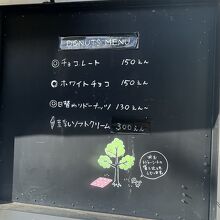 DONUTS MENU
◎チョコレート 150えん
◎ホワイトチョコ 150えん
◎日替わりドーナッツ 130えん〜
豆乳ソフトクリーム 300えん